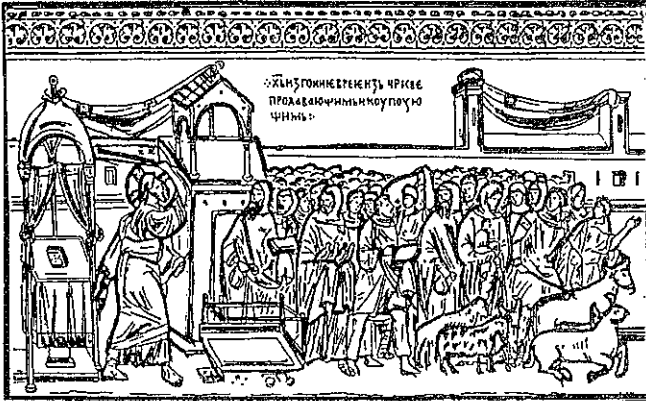 ·:·ХЪ ИЗГОНИ ЕВРЕЕ ИЗЪ ЧРКВЕ
ПРОДАВАЮЩИМЬ И КОУПОУЮ
ЩИМЬ:·